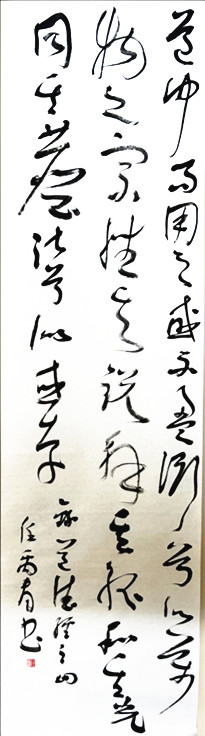 道沖而用之或不盈淵兮似萬
物之宗挫其銳解其紛和其光
同其塵湛兮似或存
錄道德經之四